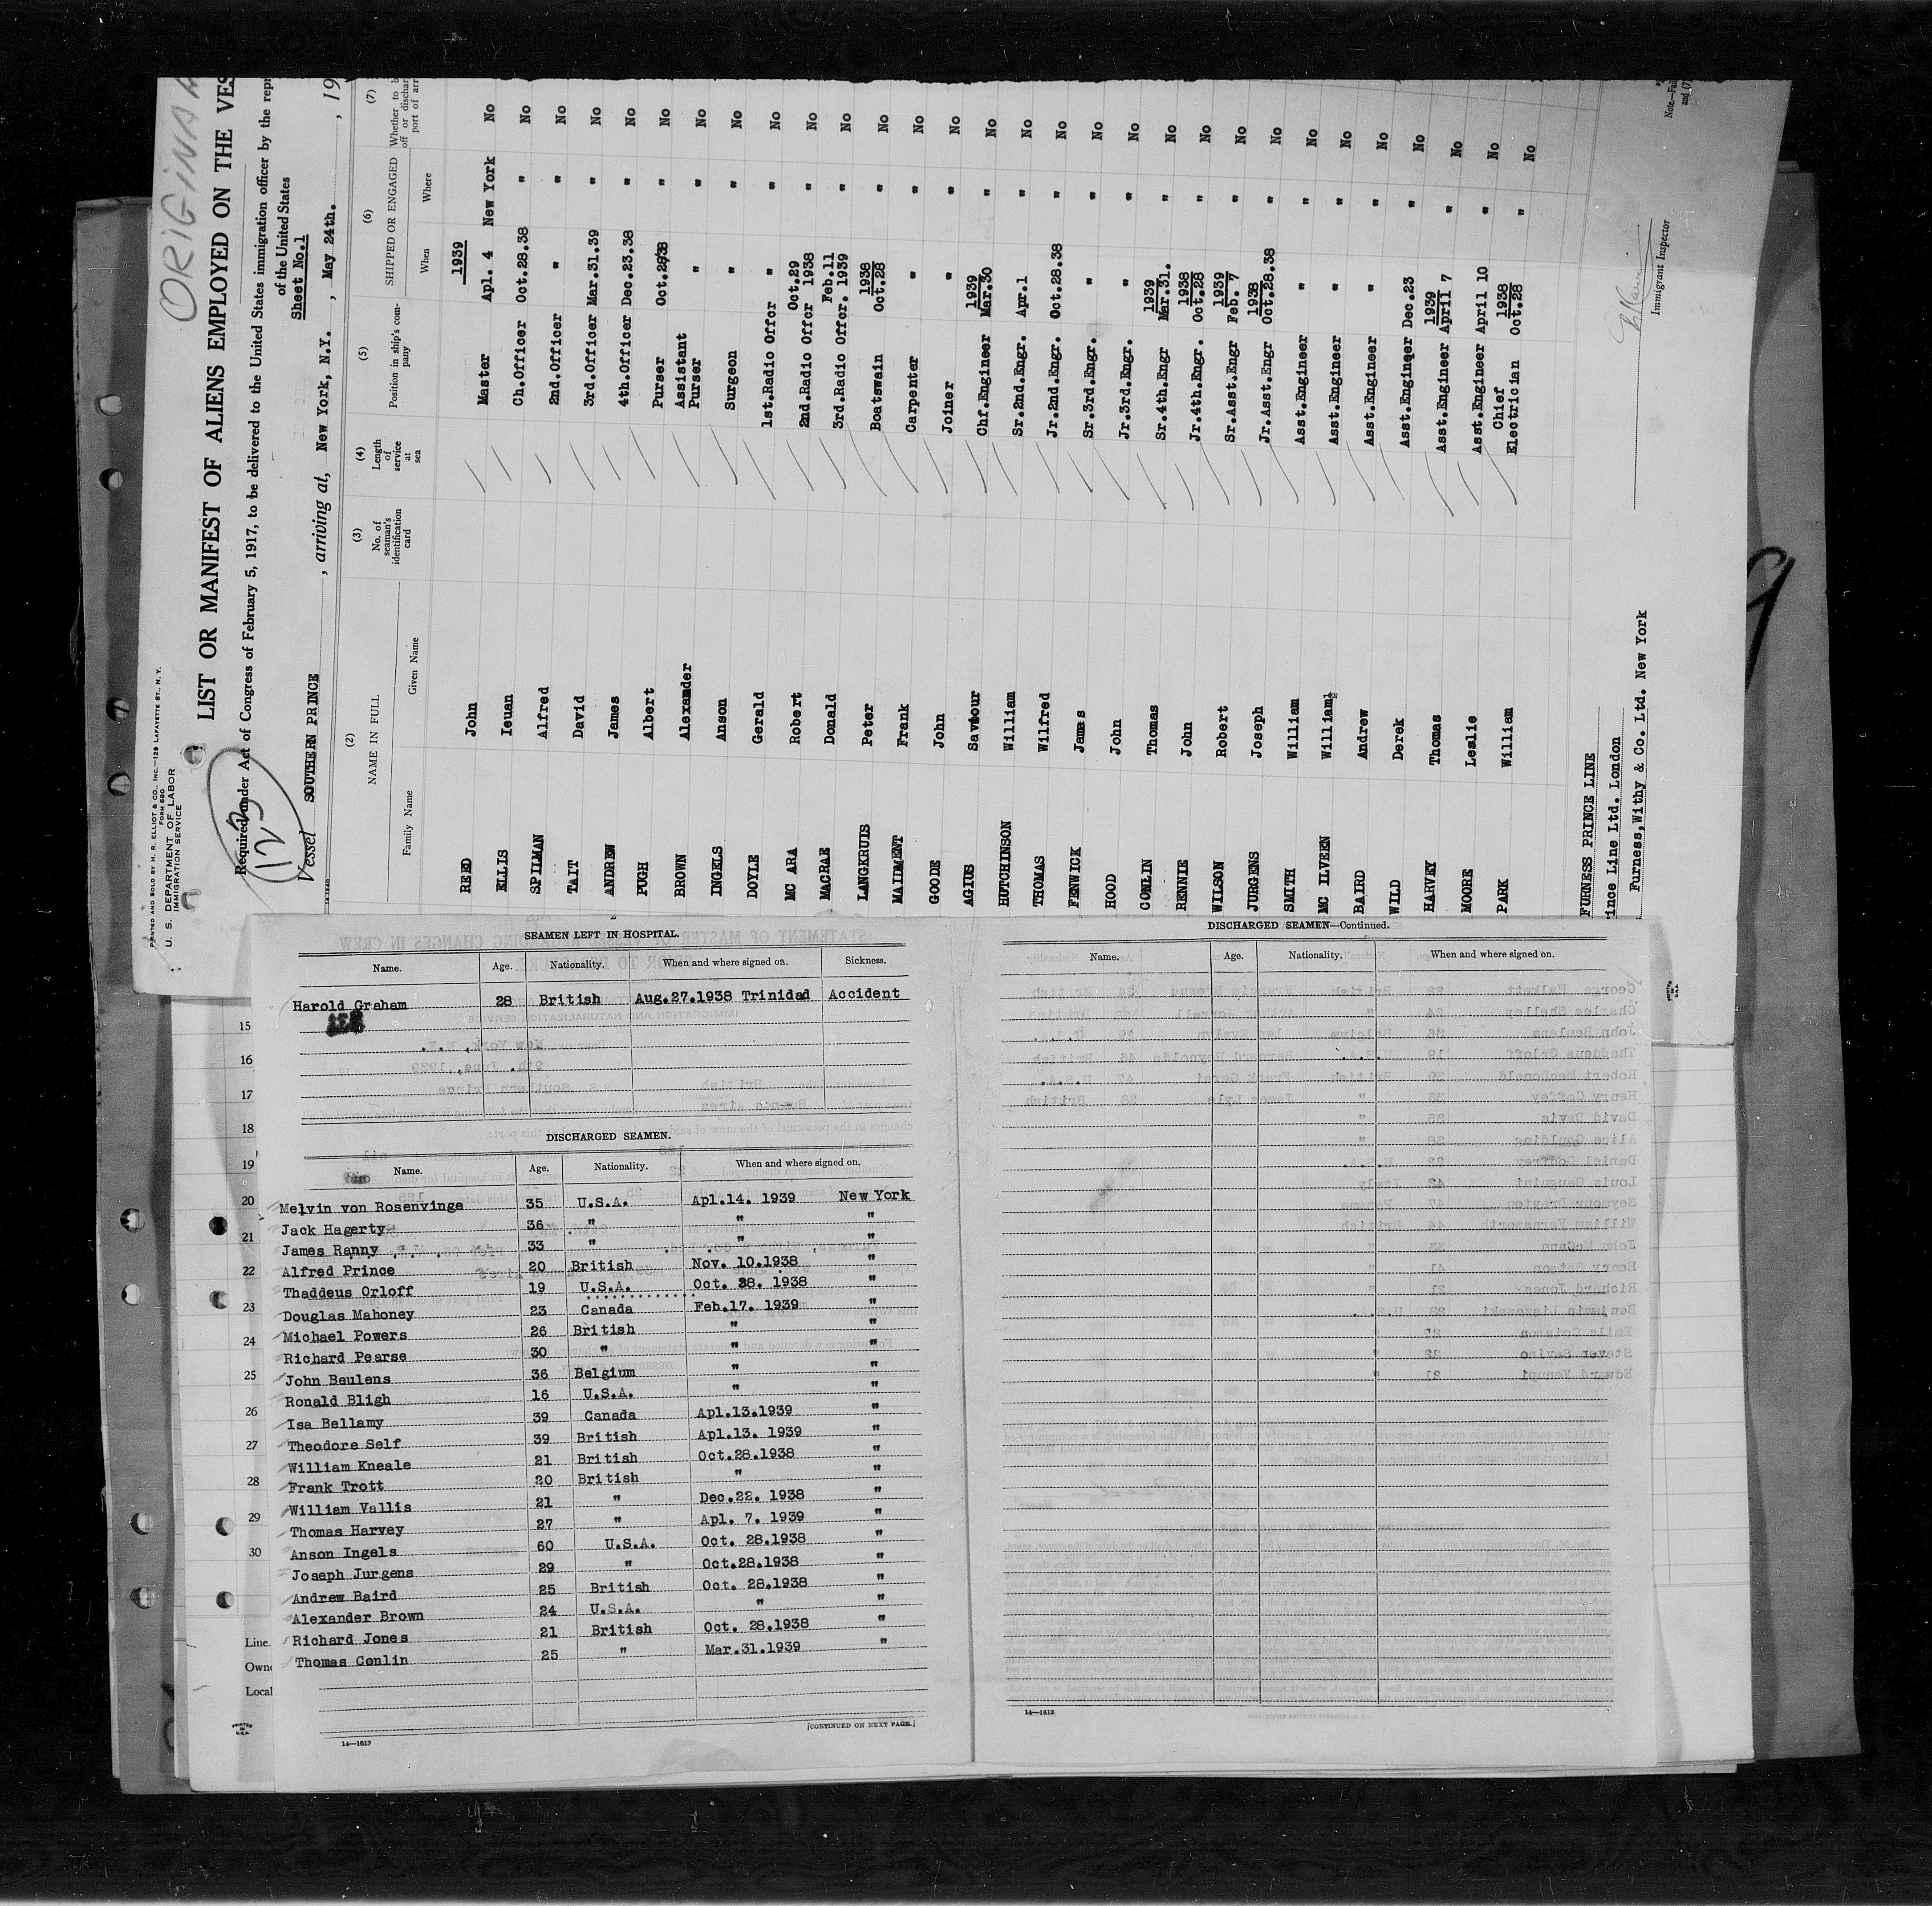 ORIGINAL
PRINTED AND SOLD BY H. R. ELLIOT & CO., INC.—129 LAFAYETTE ST., N. Y.
FORM 680
U. S. DEPARTMENT OF LABOR
IMMIGRATION SERVICE
123
LIST OR MANIFEST OF ALIENS EMPLOYED ON THE VES
Required under Act of Congress of February 5, 1917, to be delivered to the United States immigration officer by the repr
of the United States
Sheet No.1
Vessel SOUTHERN PRINCE, arriving at, New York, N.Y., May 24th., 19
(2) (3) (4) (5) (6) (7)
NAME IN FULL
Family Name Given Name
No. of seaman's identification card
Length of service at sea
Position in ship's company
SHIPPED OR ENGAGED
When Where
Whether to b
off or dischar
port of arr
1939
REED John Master Apl. 4 New York No
ELLIS Ieuan Ch.Officer Oct.28.38 " No
SPILMAN Alfred 2nd.Officer " " No
TAIT David 3rd.Officer Mar.31.39 " No
ANDREW James 4th.Officer Dec.23.38 " No
PUGH Albert Purser Oct.28/38 " No
BROWN Alexander Assistant Purser " " No
INGELS Anson Surgeon " " No
DOYLE Gerald 1st.Radio Offcr " " No
MC ARA Robert 2nd.Radio Offcr Oct.29 1938 " No
MACRAE Donald 3rd.Radio Offcr. Feb.11 1939 " No
LANGKRUIS Peter Boatswain 1938 Oct.28 " No
MAIDMENT Frank Carpenter " " No
GOODE John Joiner " " No
AGIUS Saviour Chf.Engineer 1939 Mar.30 " No
HUTCHINSON William Sr.2nd.Engr. Apr.1 " No
THOMAS Wilfred Jr.2nd.Engr. Oct.28.38 " No
FENWICK James Sr.3rd.Engr. " " No
HOOD John Jr.3rd.Engr. " " No
CONLIN Thomas Sr.4th.Engr 1939 Mar.31. " No
RENNIE John Jr.4th.Engr. 1938 Oct.28 " No
WILSON Robert Sr.Asst.Engr 1939 Feb.7 " No
JURGENS Joseph Jr.Asst.Engr 1938 Oct.28.38 " No
SMITH William Asst.Engineer " " No
MC ILVEEN William Asst.Engineer " " No
BAIRD Andrew Asst.Engineer " " No
WILD Derek Asst.Engineer Dec.23 " No
HARVEY Thomas Asst.Engineer 1939 April 7 " No
MOORE Leslie Asst.Engineer April 10 " No
PARK William Chief Electrician 1938 Oct.28 " No
FURNESS PRINCE LINE
ince Line Ltd. London
Furness,Withy & Co. Ltd. New York
Immigrant Inspector
Note—Fai
and (7)
SEAMEN LEFT IN HOSPITAL.
Name. Age. Nationality. When and where signed on. Sickness.
Harold Graham 28 British Aug.27.1938 Trinidad Accident
DISCHARGED SEAMEN.
Name. Age. Nationality. When and where signed on.
Melvin von Rosenvinge 35 U.S.A. Apl.14. 1939 New York
Jack Hagerty 36 " " "
James Ranny 33 " " "
Alfred Prince 20 British Nov. 10.1938 "
Thaddeus Orloff 19 U.S.A. Oct. 28. 1938 "
Douglas Mahoney 23 Canada Feb.17. 1939 "
Michael Powers 26 British " "
Richard Pearse 30 " " "
John Beulens 36 Belgium " "
Ronald Bligh 16 U.S.A. " "
Isa Bellamy 39 Canada Apl.13.1939 "
Theodore Self 39 British Apl.13. 1939 "
William Kneale 21 British Oct.28.1938 "
Frank Trott 20 British " "
William Vallis 21 " Dec.22. 1938 "
Thomas Harvey 27 " Apl. 7. 1939 "
Anson Ingels 60 U.S.A. Oct. 28.1938 "
Joseph Jurgens 29 " Oct.28.1938 "
Andrew Baird 25 British Oct. 28.1938 "
Alexander Brown 24 U.S.A. " "
Richard Jones 21 British Oct. 28.1938 "
Thomas Conlin 25 " Mar.31.1939 "
[CONTINUED ON NEXT PAGE.]
14—1613
DISCHARGED SEAMEN—Continued.
Name. Age. Nationality. When and where signed on.
14—1613
15
16
17
18
19
20
21
22
23
24
25
26
27
28
29
30
Line
Owne
Local
PRINTED IN U.S.A.
9